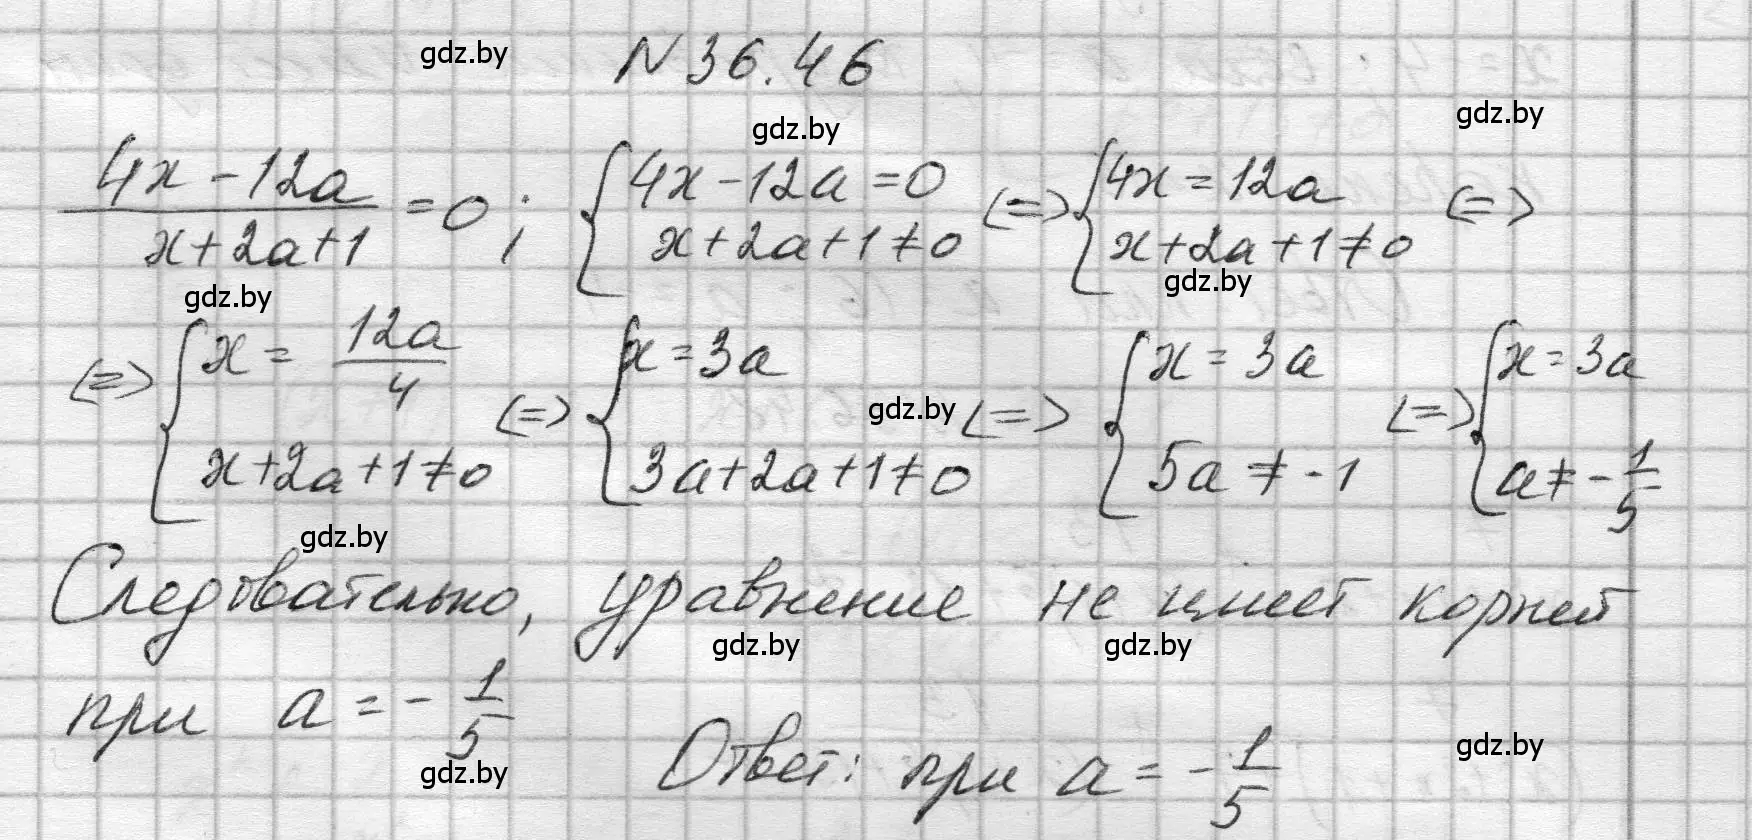 gdz.by
N 36.46
gdz.by
gdz.by
(4x - 12a)/(x + 2a + 1) = 0; { 4x - 12a = 0 <=> { 4x = 12a <=>
x + 2a + 1 ≠ 0 x + 2a + 1 ≠ 0
gdz.by
gdz.by
<=> { x = 12a/4 <=> { x = 3a <=> { x = 3a <=> { x = 3a
gdz.by
x + 2a + 1 ≠ 0 3a + 2a + 1 ≠ 0 5a ≠ -1 a ≠ -1/5
gdz.by
Следовательно, уравнение не имеет корней
gdz.by gdz.by
при a = -1/5
gdz.by
gdz.by
Ответ: при a = -1/5